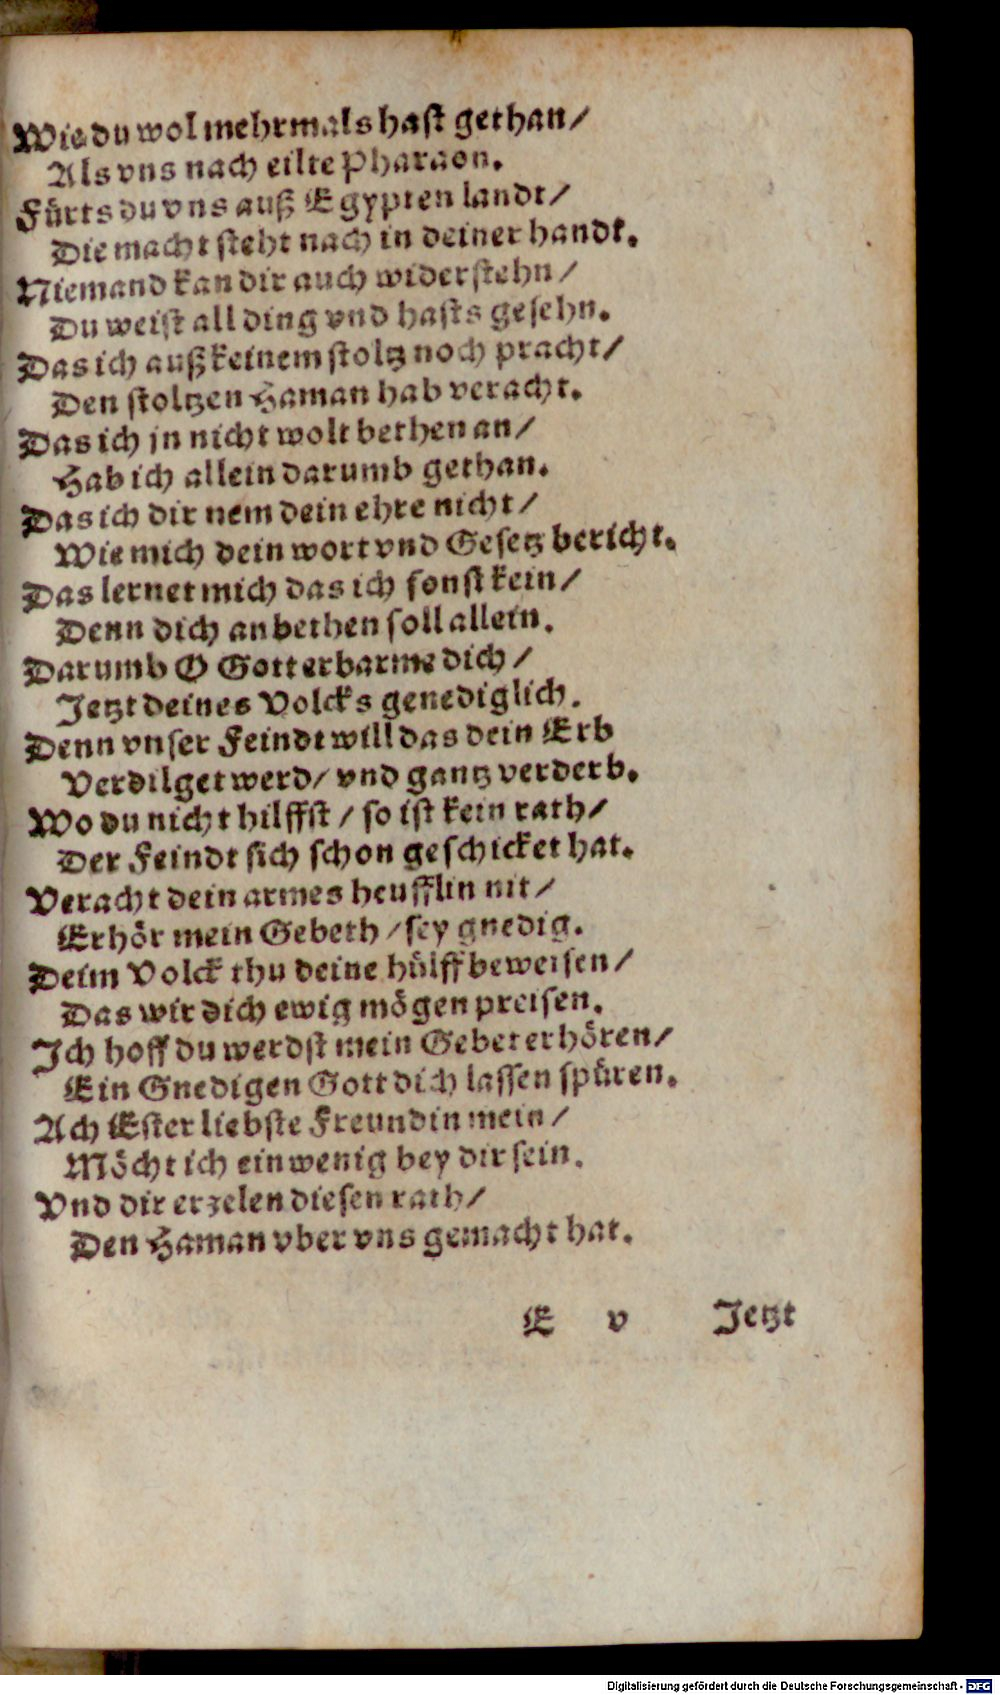 Wie du wol mehrmals hast gethan/
Als vns nach eilte Pharaon.
Fürts du vns auß Egypten landt/
Die macht steht nach in deiner handt.
Niemand kan dir auch widerstehn/
Du weist all ding vnd hasts gesehn.
Das ich auß keinem stoltz noch pracht/
Den stoltzen Haman hab veracht.
Das ich jn nicht wolt bethen an/
Hab ich allein darumb gethan.
Das ich dir nem dein ehre nicht/
Wie mich dein wort vnd Gesetz bericht.
Das lernet mich das ich sonst kein/
Denn dich anbethen soll allein.
Darumb O Gott erbarme dich/
Jetzt deines Volcks genediglich.
Denn vnser Feindt will das dein Erb
Verdilget werd/ vnd gantz verderb.
Wo du nicht hilffst/ so ist kein rath/
Der Feindt sich schon geschicket hat.
Veracht dein armes heufflin nit/
Erhör mein Gebeth/ sey gnedig.
Deim Volck thu deine hülff beweisen/
Das wir dich ewig mögen preisen.
Ich hoff du werdst mein Gebet erhören/
Ein Gnedigen Gott dich lassen spüren.
Ach Ester liebste Freundin mein/
Möcht ich ein wenig bey dir sein.
Vnd dir erzelen diesen rath/
Den Haman vber vns gemacht hat.
E v Jetzt
Digitalisierung gefördert durch die Deutsche Forschungsgemeinschaft - DFG